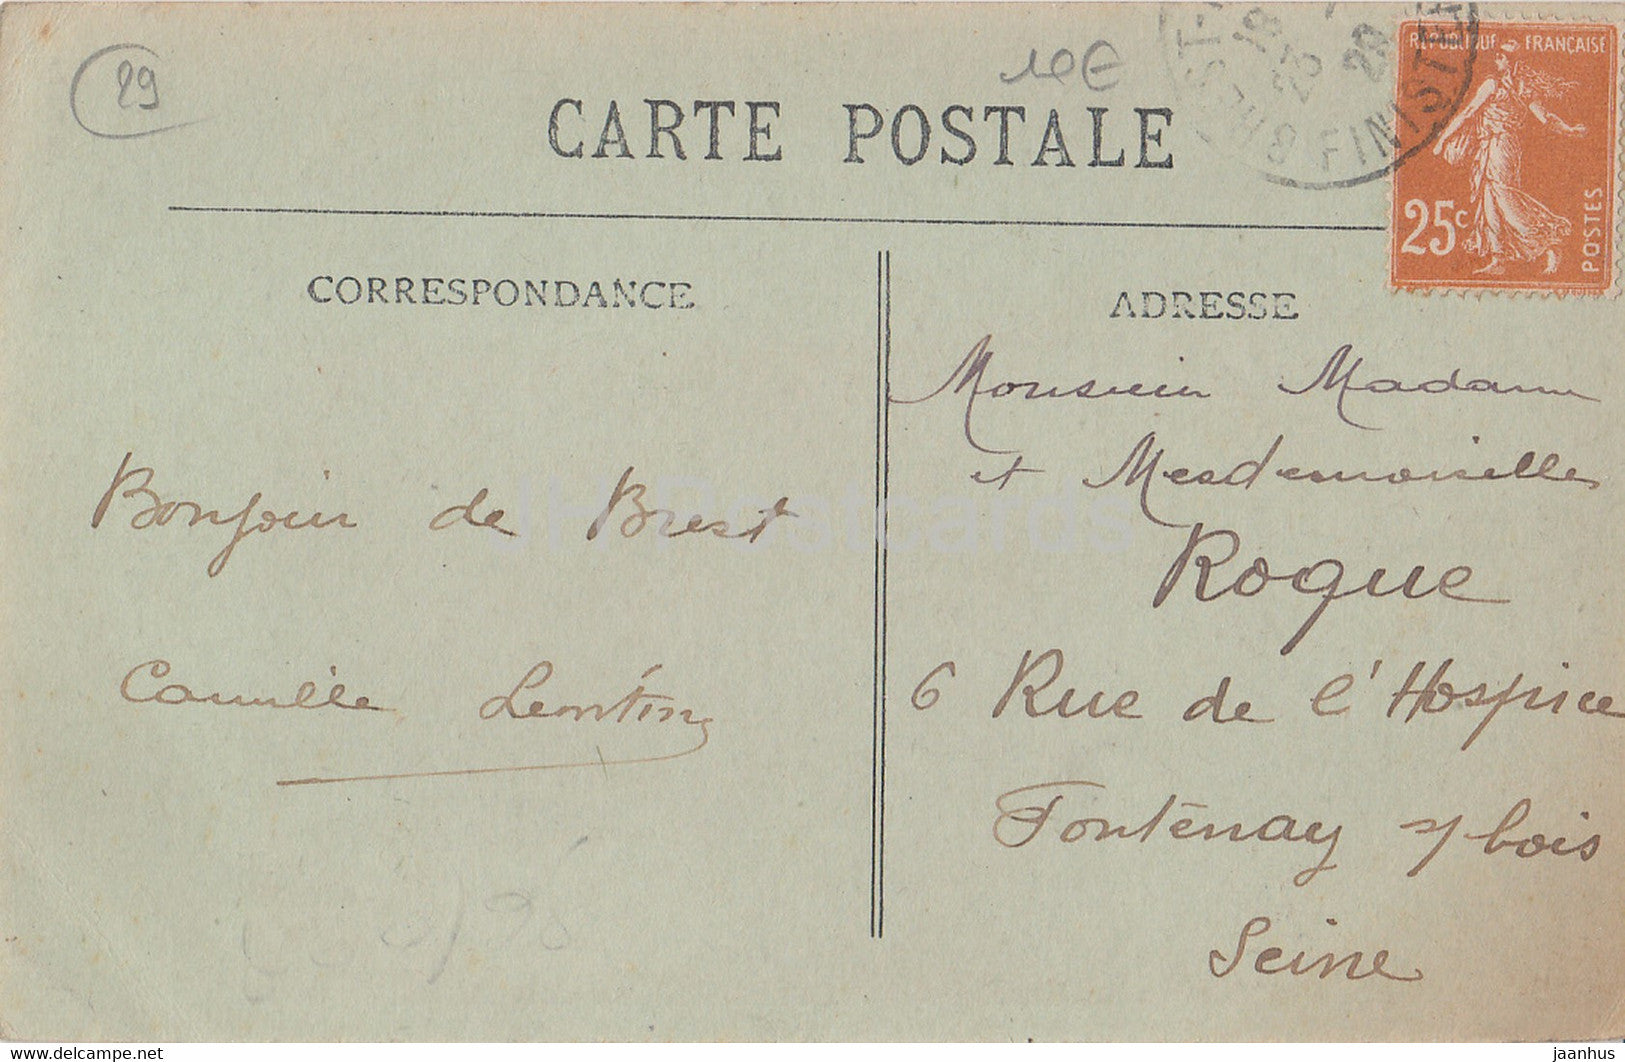 29
10€
CARTE POSTALE
BREST
FINISTE
RÉPUBLIQUE FRANÇAISE
25c
POSTES
CORRESPONDANCE
Bonjour de Brest
Camille
ADRESSE
Monsieur Madame
et Mesdemoiselles
Roque
6 Rue de l'Hospice
Fontenay s/ bois
Seine
JH Postcards
www.delcampe.net
jaanhus